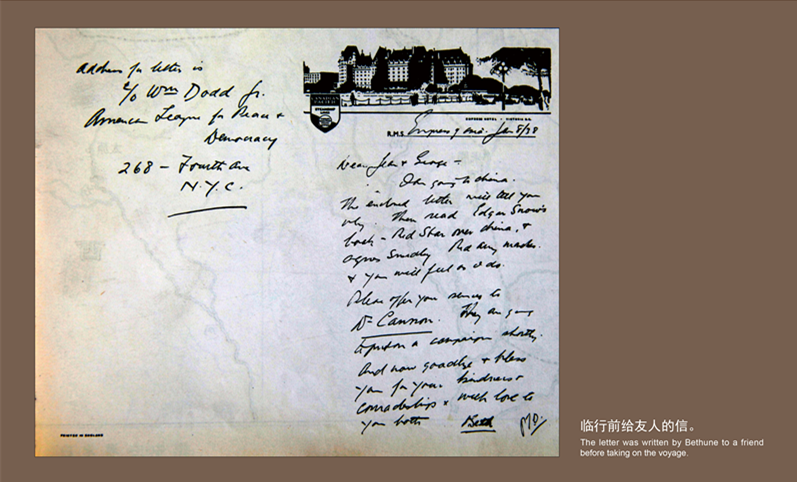 Address for letter is
c/o Wm Dodd Jr.
American League for Peace &
Democracy
268 - Fourth Ave
N.Y.C.
CANADIAN
PACIFIC
EMPRESS HOTEL - VICTORIA B.C.
R.M.S. Empress of Asia. Jan 8/38
Dear Jean & George -
I am going to China.
The enclosed letter will tell you
why. Then read Edgar Snow's
book - Red Star over China, &
Agnes Smedley Red Army marches
& you will feel as I do.
Please offer your services to
Dr Cannon. They are going
to put on a campaign shortly.
And now goodbye & bless
you for your kindness &
comradeship & with love to
you both Beth
PRINTED IN ENGLAND
临行前给友人的信。
The letter was written by Bethune to a friend
before taking on the voyage.